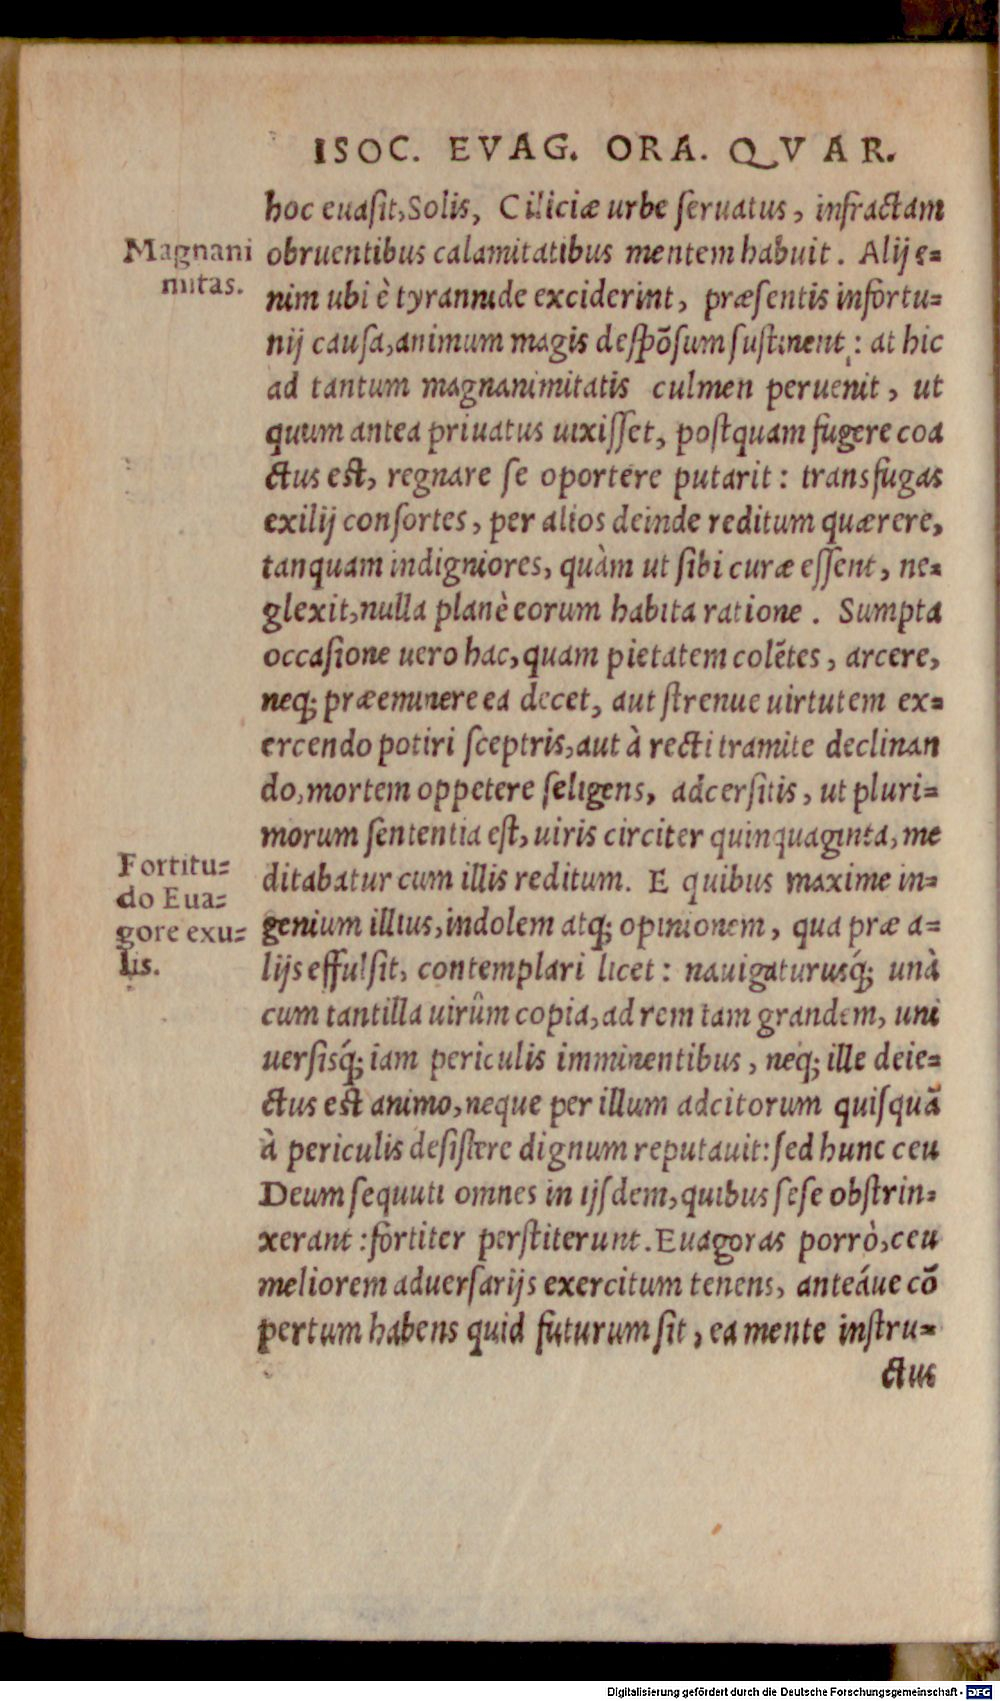 ISOC. EVAG. ORA. QVAR.
hoc euaſit, Solis, Ciliciæ urbe ſeruatus, infractam
Magnani
obruentibus calamitatibus mentem habuit. Alij e=
mitas.
nim ubi è tyrannide exciderint, præſentis infortu=
nij cauſa, animum magis deſpõſum ſuſtinent: at hic
ad tantum magnanimitatis culmen peruenit, ut
quum antea priuatus uixiſſet, poſtquam fugere coa
ctus eſt, regnare ſe oportere putarit: transfugas
exilij conſortes, per alios deinde reditum quærere,
tanquam indigniores, quàm ut ſibi curæ eſſent, ne=
glexit, nulla planè eorum habita ratione. Sumpta
occaſione uero hac, quam pietatem colẽtes, arcere,
neq; præeminere ea decet, aut ſtrenue uirtutem ex=
ercendo potiri ſceptris, aut à recti tramite declinan
do, mortem oppetere ſeligens, adcerſitis, ut pluri=
morum ſententia eſt, uiris circiter quinquaginta, me
Fortitu=
ditabatur cum illis reditum. E quibus maxime in=
do Eua=
genium illius, indolem atq; opinionem, qua præ a=
gore exu=
lijs effulſit, contemplari licet: nauigaturusq́; unà
lis.
cum tantilla uirûm copia, ad rem tam grandem, uni
uerſisq́; iam periculis imminentibus, neq; ille deie=
ctus eſt animo, neque per illum adcitorum quiſquã
à periculis deſiſtere dignum reputauit: ſed hunc ceu
Deum ſequuti omnes in ijſdem, quibus ſeſe obſtrin=
xerant: fortiter perſtiterunt. Euagoras porrò, ceu
meliorem aduerſarijs exercitum tenens, anteáue cõ
pertum habens quid futurum ſit, ea mente inſtru=
ctus
Digitalisierung gefördert durch die Deutsche Forschungsgemeinschaft - DFG